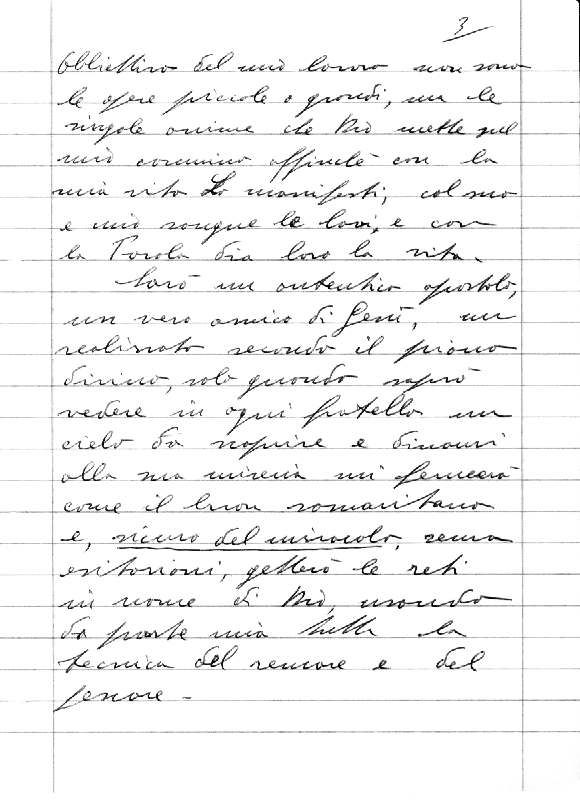 3
Obbiettivo del mio lavoro non sono
le opere piccole o grandi, ma le
singole anime che Dio mette nel
mio cammino affinchè con la
mia vita Lo manifesti, col suo
e mio sangue le lavi, e con
la Parola dia loro la vita.
Sarò un autentico apostolo,
un vero amico di Gesù, un
realizzato secondo il piano
divino, solo quando saprò
vedere in ogni fratello un
cielo da scoprire e dinanzi
alla sua miseria mi fermerò
come il buon samaritano
e, sicuro del miracolo, senza
esitazioni, getterò le reti
in nome di Dio, usando
da parte mia tutta la
tecnica del remare e del
pescare -